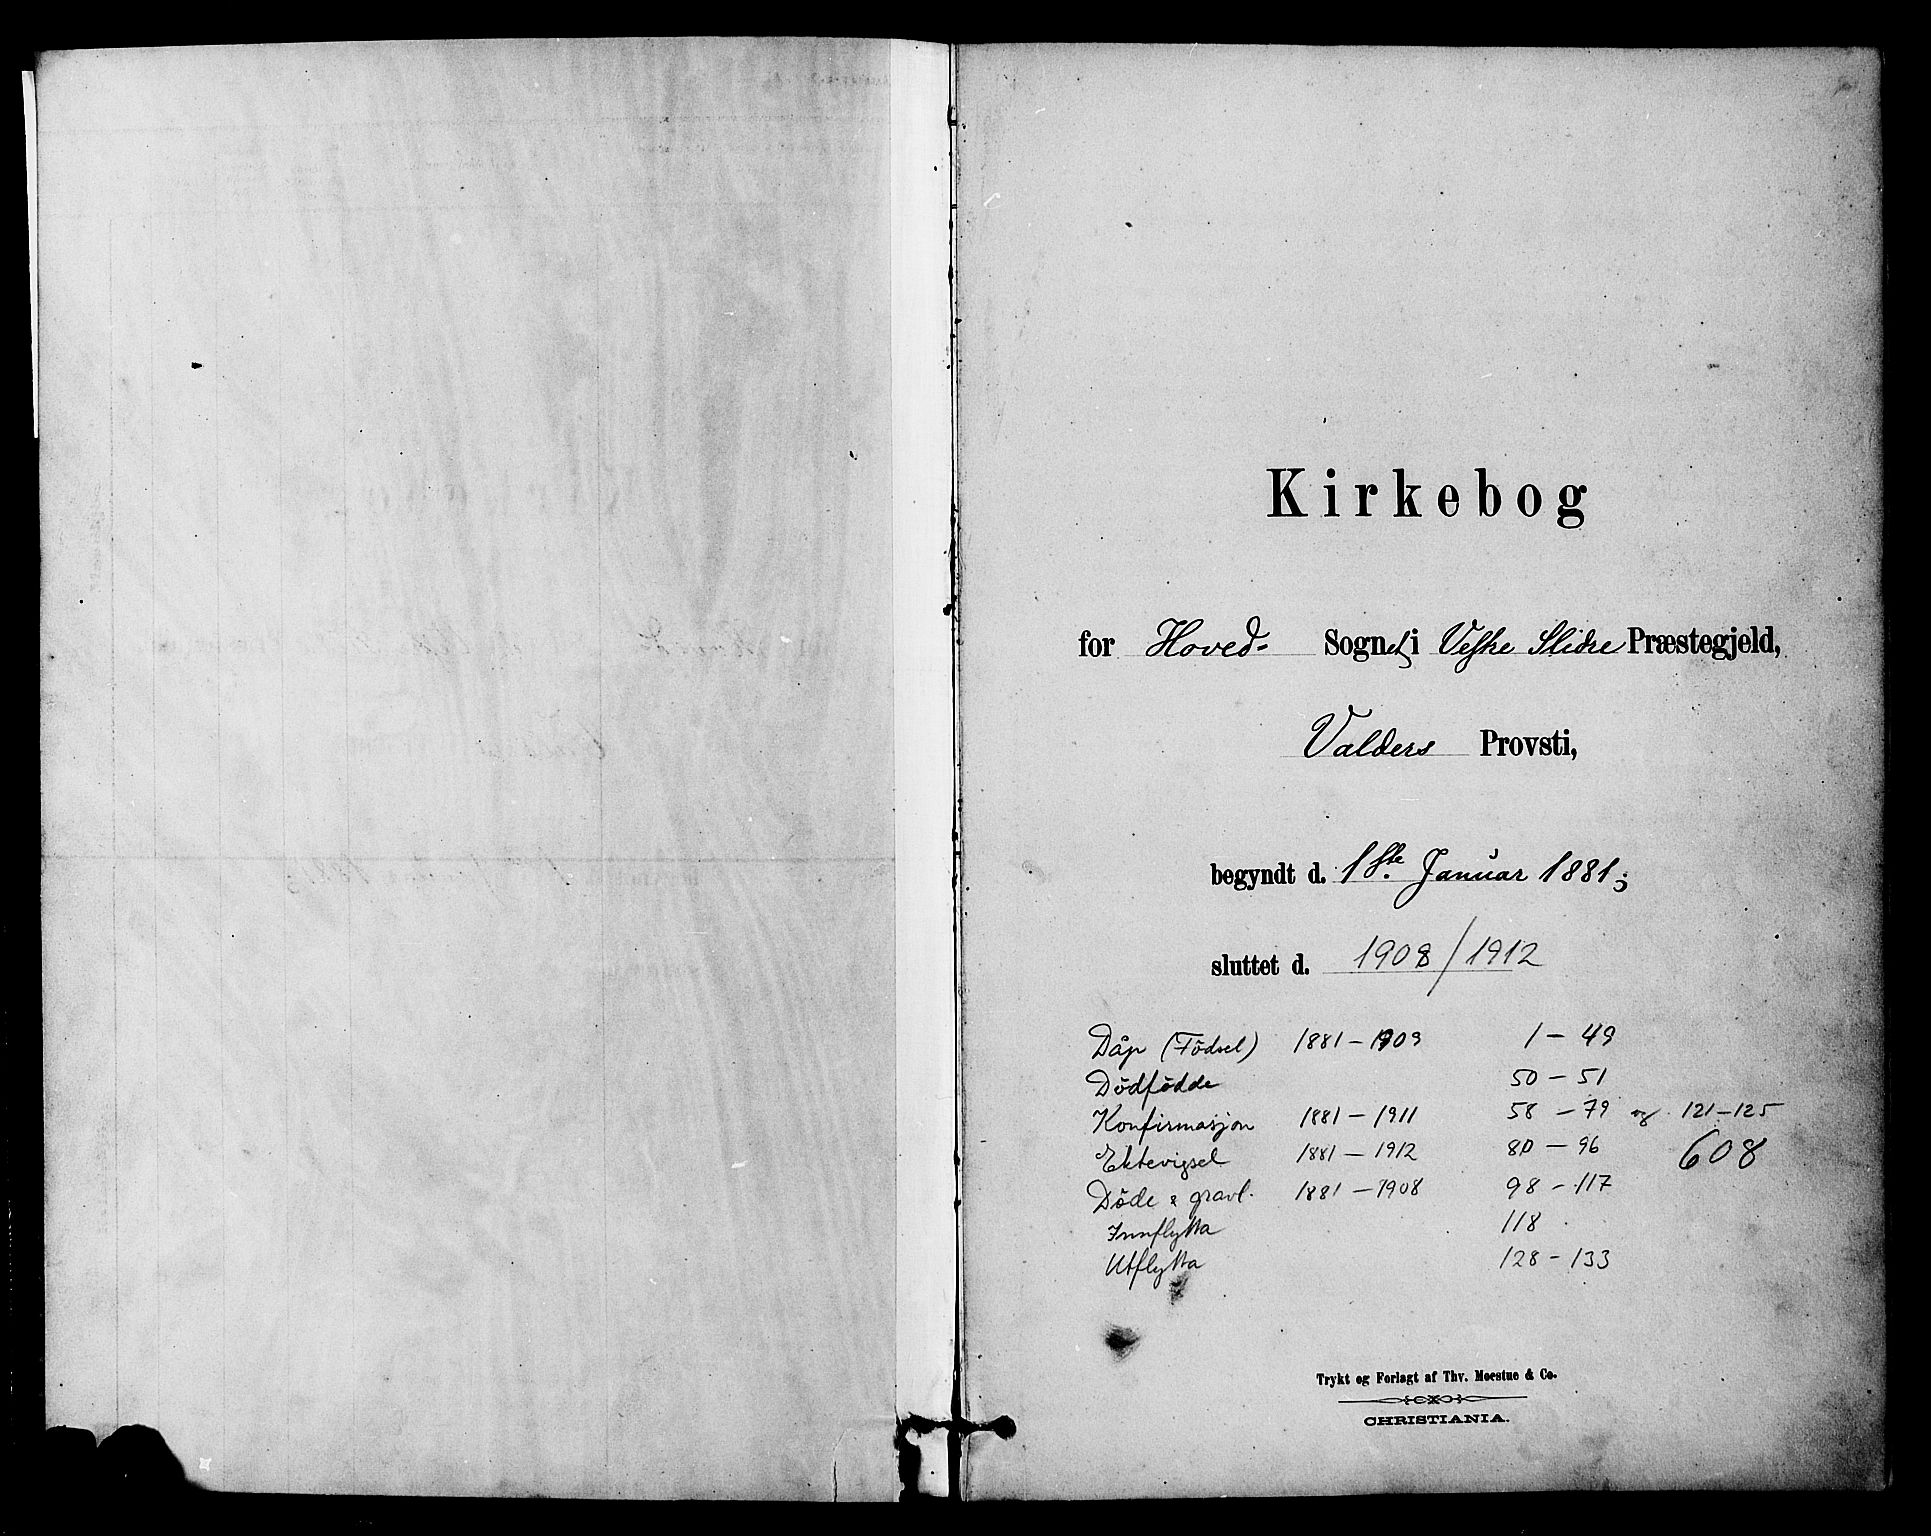 Kirkebog
for Hoved- Sognet i Vestre Slidre Præstegjeld,
Valders Provsti,
begyndt d. 1ste Januar 1881;
sluttet d. 1908/1912
Dåp (Födsel) 1881 – 1909 1 – 49
Dödfödde 50 – 51
Konfirmasjon 1881 – 1911 58 – 79 og 121–125
Ektevigsel 1881 – 1912 80 – 96 608
Döde & gravl. 1881 – 1908 98 – 117
Innflytta 118
Utflytta 128 – 133
Trykt og Forlagt af Thv. Moestue & Co.
CHRISTIANIA.